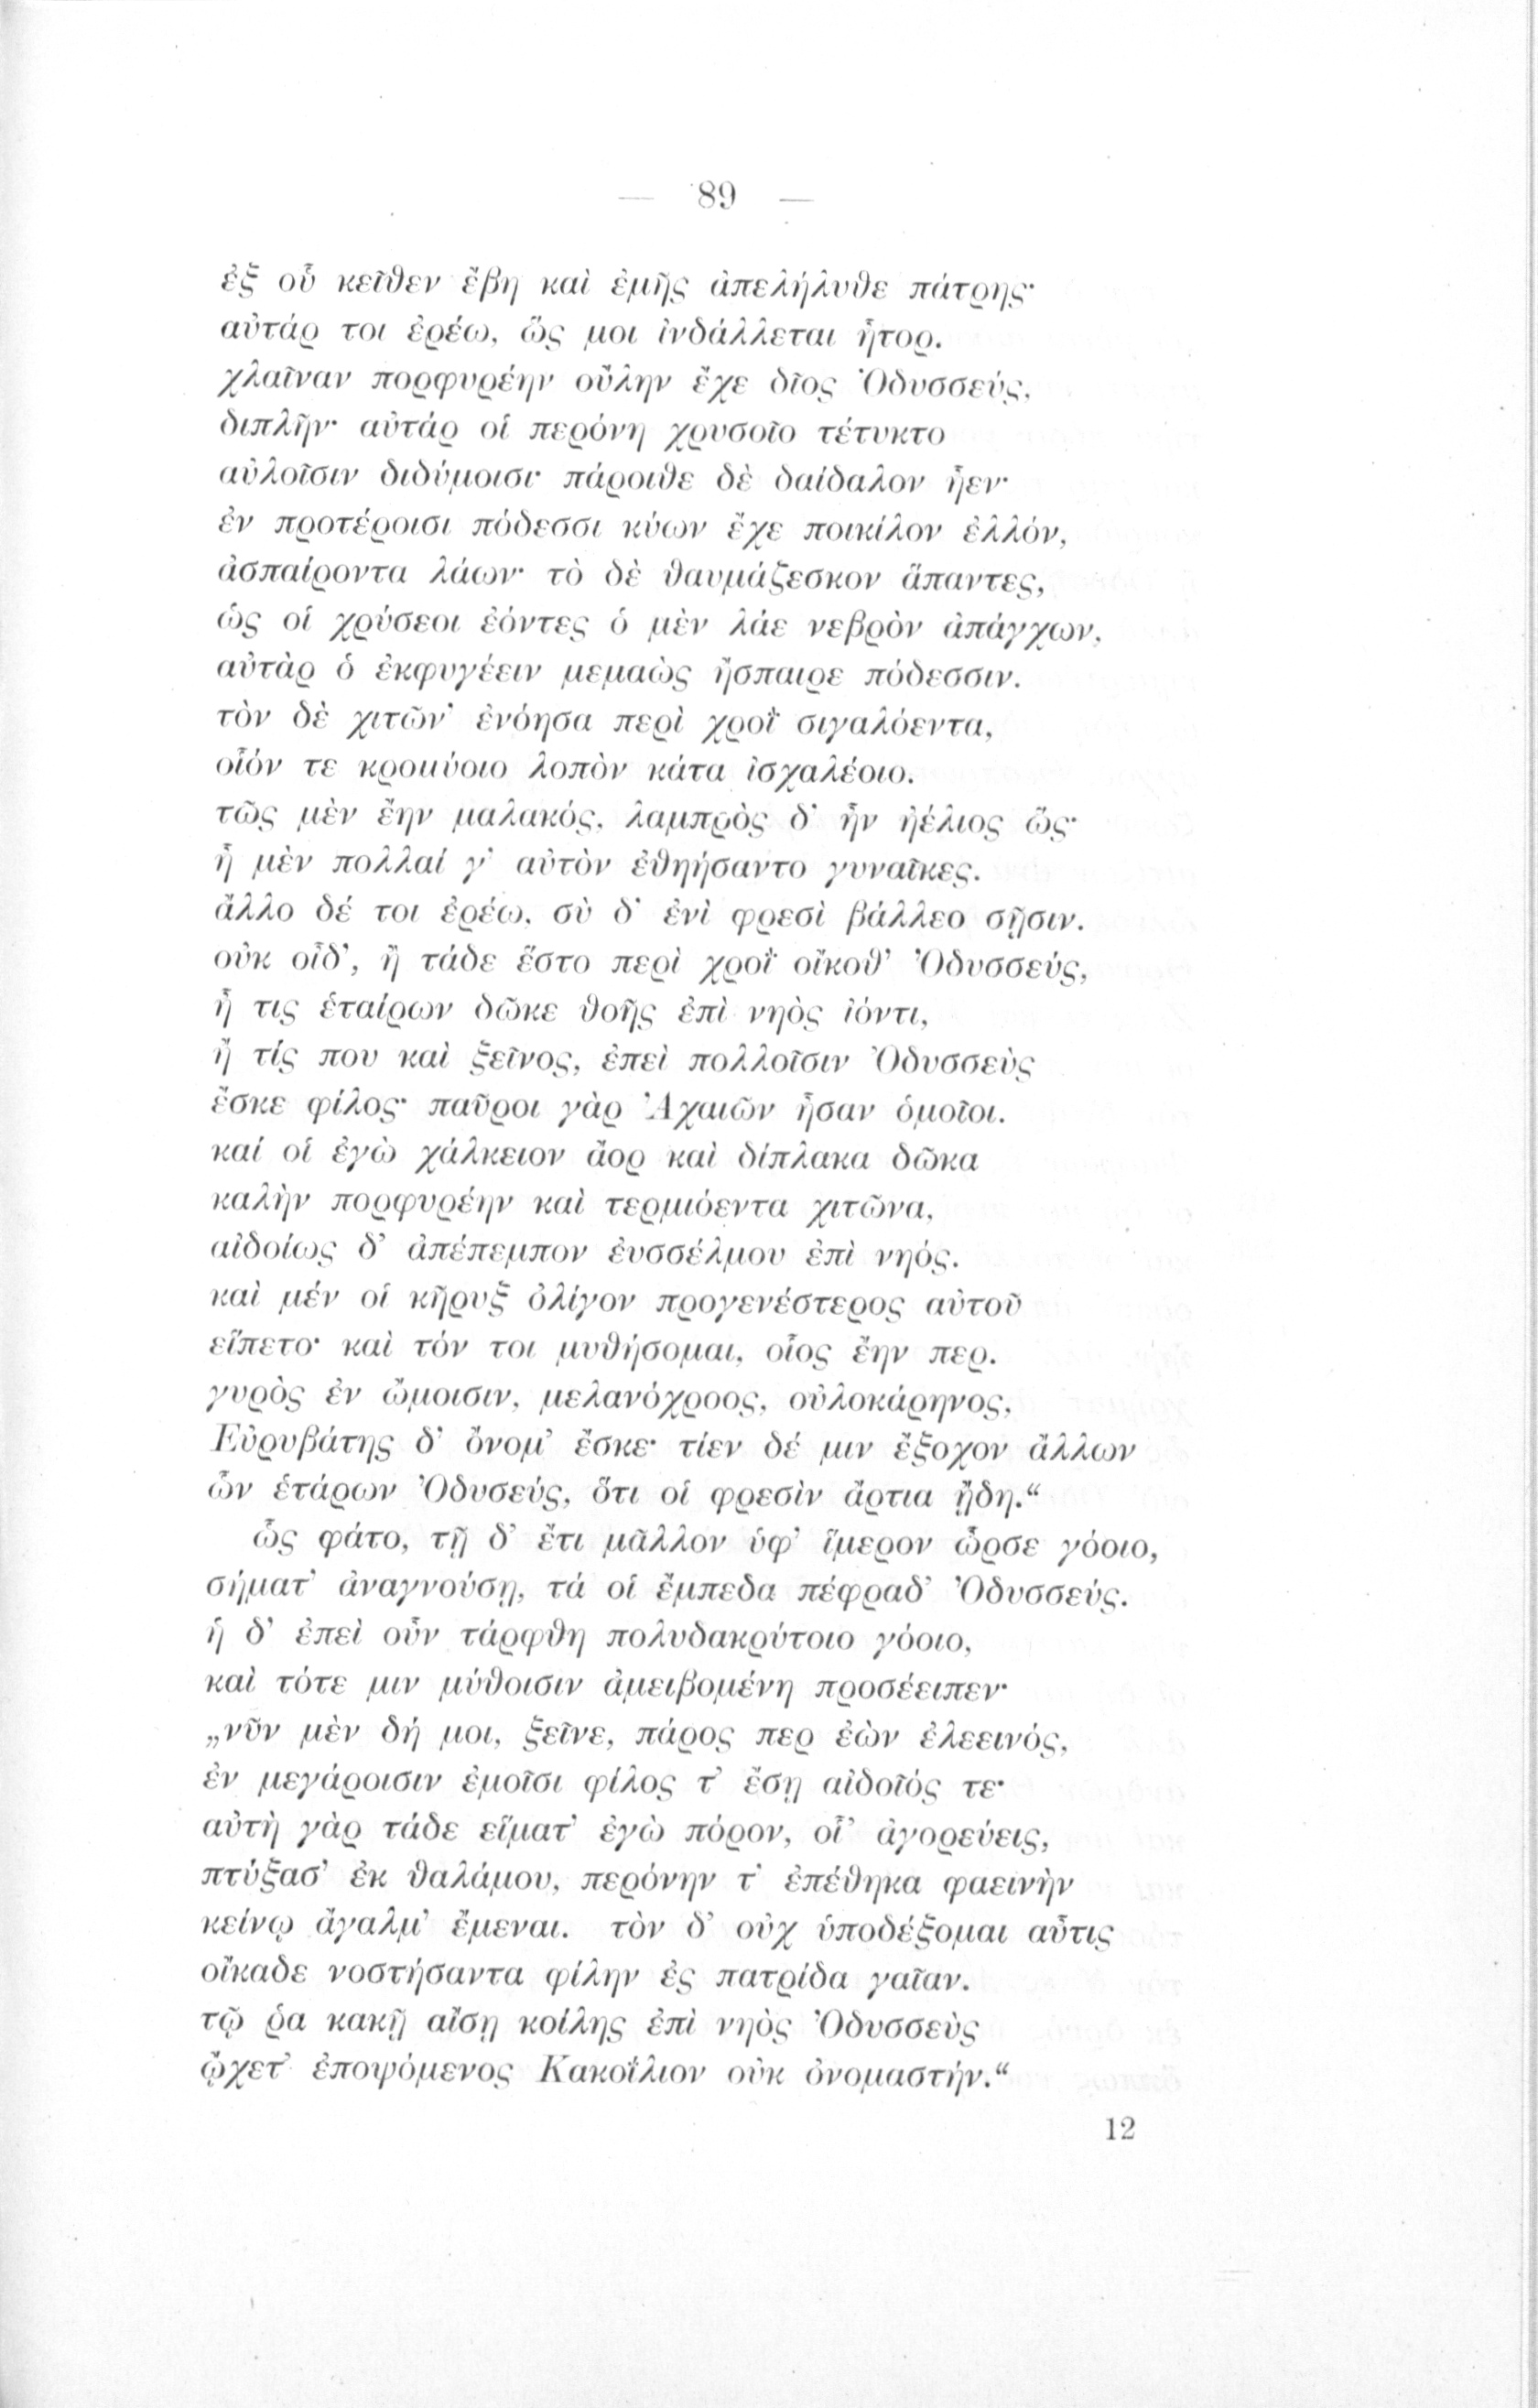 — 89 —
ἐξ οὗ κεῖθεν ἔβη καὶ ἐμῆς ἀπελήλυθε πάτρης·
αὐτάρ τοι ἐρέω, ὥς μοι ἰνδάλλεται ἦτορ.
χλαῖναν πορφυρέην οὔλην ἔχε δῖος Ὀδυσσεύς,
διπλῆν· αὐτάρ οἱ περόνη χρυσοῖο τέτυκτο
αὐλοῖσιν διδύμοισι· πάροιθε δὲ δαίδαλον ἦεν·
ἐν προτέροισι πόδεσσι κύων ἔχε ποικίλον ἐλλόν,
ἀσπαίροντα λάων· τὸ δὲ θαυμάζεσκον ἅπαντες,
ὡς οἱ χρύσεοι ἐόντες ὁ μὲν λάε νεβρὸν ἀπάγχων,
αὐτὰρ ὁ ἐκφυγέειν μεμαὼς ἤσπαιρε πόδεσσιν.
τὸν δὲ χιτῶν' ἐνόησα περὶ χροῒ σιγαλόεντα,
οἷόν τε κρομύοιο λοπὸν κάτα ἰσχαλέοιο.
τῶς μὲν ἔην μαλακός, λαμπρὸς δ' ἦν ἠέλιος ὥς·
ἦ μὲν πολλαί γ' αὐτὸν ἐθηήσαντο γυναῖκες.
ἄλλο δέ τοι ἐρέω, σὺ δ' ἐνὶ φρεσὶ βάλλεο σῇσιν.
οὐκ οἶδ', ἢ τάδε ἕστο περὶ χροῒ οἴκοθ' Ὀδυσσεύς,
ἦ τις ἑταίρων δῶκε θοῆς ἐπὶ νηὸς ἰόντι,
ἤ τίς που καὶ ξεῖνος, ἐπεὶ πολλοῖσιν Ὀδυσσεὺς
ἔσκε φίλος· παῦροι γὰρ Ἀχαιῶν ἦσαν ὁμοῖοι.
καί οἱ ἐγὼ χάλκειον ἄορ καὶ δίπλακα δῶκα
καλὴν πορφυρέην καὶ τερμιόεντα χιτῶνα,
αἰδοίως δ' ἀπέπεμπον ἐυσσέλμου ἐπὶ νηός.
καὶ μέν οἱ κῆρυξ ὀλίγον προγενέστερος αὐτοῦ
εἵπετο· καὶ τόν τοι μυθήσομαι, οἷος ἔην περ.
γυρὸς ἐν ὤμοισιν, μελανόχροος, οὐλοκάρηνος,
Εὐρυβάτης δ' ὄνομ' ἔσκε· τίεν δέ μιν ἔξοχον ἄλλων
ὧν ἑτάρων Ὀδυσεύς, ὅτι οἱ φρεσὶν ἄρτια ᾔδη.“
ὣς φάτο, τῇ δ' ἔτι μᾶλλον ὑφ' ἵμερον ὦρσε γόοιο,
σήματ' ἀναγνούσῃ, τά οἱ ἔμπεδα πέφραδ' Ὀδυσσεύς.
ἡ δ' ἐπεὶ οὖν τάρφθη πολυδακρύτοιο γόοιο,
καὶ τότε μιν μύθοισιν ἀμειβομένη προσέειπεν·
„νῦν μὲν δή μοι, ξεῖνε, πάρος περ ἐὼν ἐλεεινός,
ἐν μεγάροισιν ἐμοῖσι φίλος τ' ἔσῃ αἰδοῖός τε·
αὐτὴ γὰρ τάδε εἵματ' ἐγὼ πόρον, οἷ' ἀγορεύεις,
πτύξασ' ἐκ θαλάμου, περόνην τ' ἐπέθηκα φαεινὴν
κείνῳ ἄγαλμ' ἔμεναι. τὸν δ' οὐχ ὑποδέξομαι αὖτις
οἴκαδε νοστήσαντα φίλην ἐς πατρίδα γαῖαν.
τῷ ῥα κακῇ αἴσῃ κοίλης ἐπὶ νηὸς Ὀδυσσεὺς
ᾤχετ' ἐποψόμενος Κακοΐλιον οὐκ ὀνομαστήν.“
12